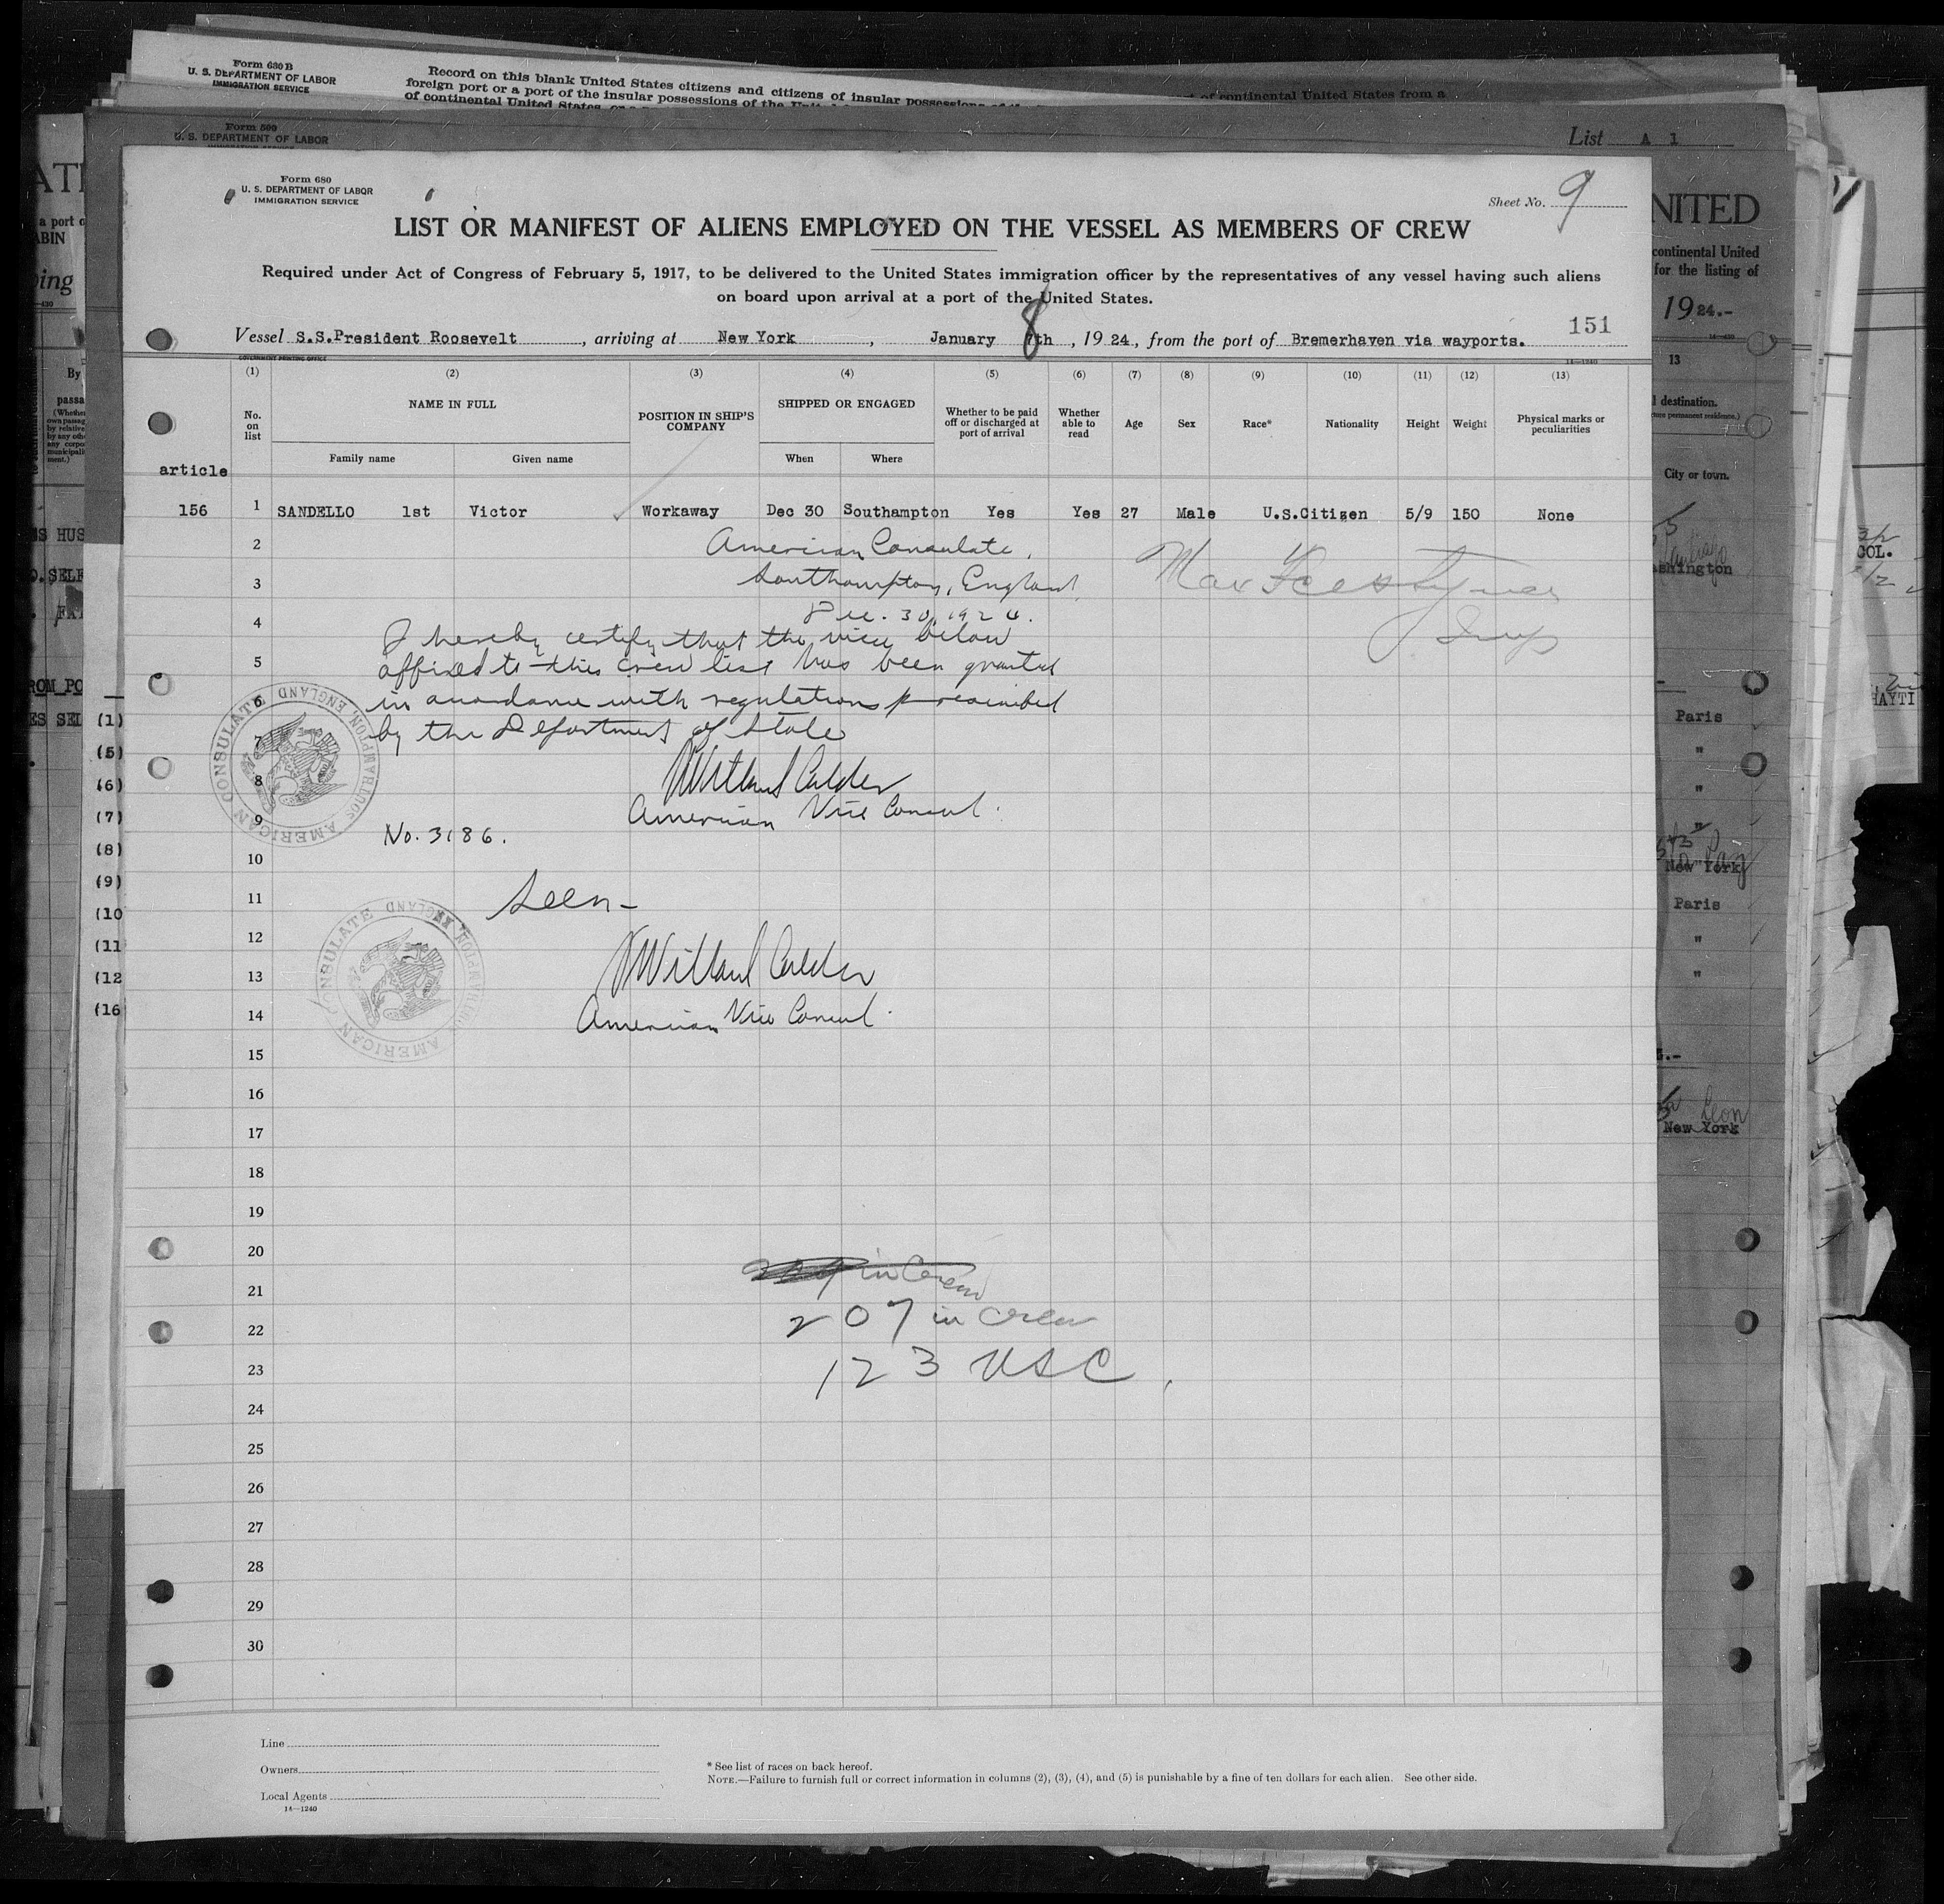 Form 630 B
U. S. DEPARTMENT OF LABOR
IMMIGRATION SERVICE
Record on this blank United States citizens and citizens of insular possessions
foreign port or a port of the insular possessions of the
of continental United States
of continental United States from a
Form 500
U. S. DEPARTMENT OF LABOR
List A 1
Form 680
U. S. DEPARTMENT OF LABOR
IMMIGRATION SERVICE
Sheet No. 9
LIST OR MANIFEST OF ALIENS EMPLOYED ON THE VESSEL AS MEMBERS OF CREW
Required under Act of Congress of February 5, 1917, to be delivered to the United States immigration officer by the representatives of any vessel having such aliens
on board upon arrival at a port of the United States.
151
Vessel S.S.President Roosevelt, arriving at New York, January 8 7th, 1924, from the port of Bremerhaven via wayports.
GOVERNMENT PRINTING OFFICE
14—1240
(1) (2) (3) (4) (5) (6) (7) (8) (9) (10) (11) (12) (13)
No. on list
NAME IN FULL
POSITION IN SHIP'S COMPANY
SHIPPED OR ENGAGED
Whether to be paid off or discharged at port of arrival
Whether able to read
Age
Sex
Race*
Nationality
Height
Weight
Physical marks or peculiarities
Family name
Given name
When
Where
article
156 1 SANDELLO 1st Victor Workaway Dec 30 Southampton Yes Yes 27 Male U.S.Citizen 5/9 150 None
2 American Consulate,
3 Southampton, England
4 Dec. 30, 192
I hereby certify that the visa below
5 affixed to this crew list has been granted
6 in accordance with regulations prescribed
7 by the Department of State
8 Willard Calder
9 American Vice Consul.
No. 3186.
AMERICAN CONSULATE SOUTHAMPTON, ENGLAND
10
11 Seen-
12
13 Willard Calder
14 American Vice Consul.
AMERICAN CONSULATE SOUTHAMPTON, ENGLAND
15
16
17
18
19
20
21 in Crew
22 207 in crew
23 123 USC
24
25
26
27
28
29
30
Line
Owners
Local Agents
14—1240
* See list of races on back hereof.
NOTE.—Failure to furnish full or correct information in columns (2), (3), (4), and (5) is punishable by a fine of ten dollars for each alien. See other side.
(1)
(5)
(6)
(7)
(8)
(9)
(10
(11
(12
(16
NITED
continental United
for the listing of
1924.-
13
destination.
City or town.
Paris
"
"
"
New York
Paris
"
"
Leon
New York
COL.
HAYTI